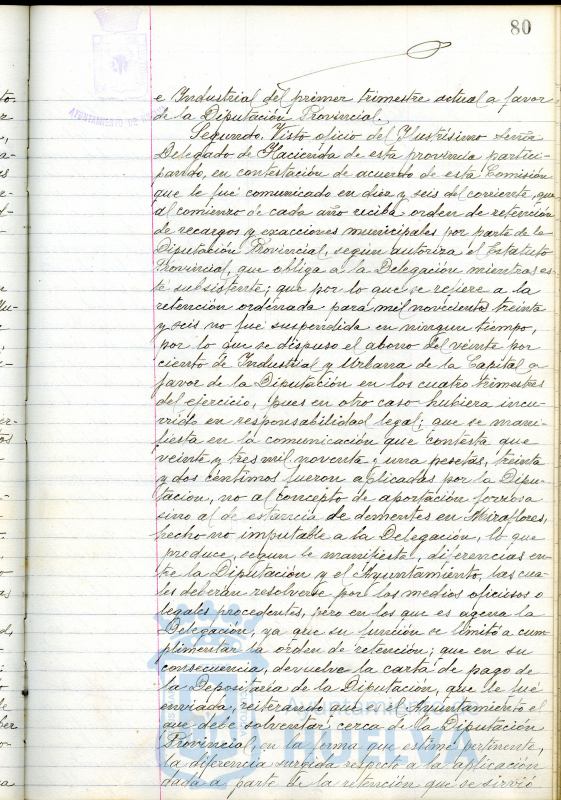 80
AYUNTAMIENTO DE
e Industrial del primer trimestre actual a favor
de la Diputación Provincial.
Segundo. Visto oficio del Ilustrísimo Señor
Delegado de Hacienda de esta provincia partici-
pando, en contestación de acuerdo de esta Comisión
que le fué comunicado en diez y seis del corriente, que
al comienzo de cada año recibe orden de retención
de recargos y exacciones municipales por parte de la
Diputación Provincial, según autoriza el Estatuto
Provincial, que obliga a la Delegación mientras es-
té subsistente; que por lo que se refiere a la
retención ordenada para mil novecientos treinta
y seis no fué suspendida en ningun tiempo,
por lo que se dispuso el abono del veinte por
ciento de Industrial y Urbana de la Capital a
favor de la Diputación en los cuatro trimestres
del ejercicio, pues en otro caso hubiera incu-
rrido en responsabilidad legal; que se mani-
fiesta en la comunicación que contesta que
veinte y tres mil noventa y una pesetas, treinta
y dos céntimos fueron aplicadas por la Dipu-
tación, no al concepto de aportación forzosa
sino al de estancia de dementes en Miraflores,
hecho no imputable a la Delegación, lo que
produce, segun se manifiesta, diferencias en-
tre la Diputación y el Ayuntamiento, las cua-
les deverán resolverse por los medios oficiosos o
legales procedentes, pero en los que es agena la
Delegación, ya que su función se limitó a cum-
plimentar la orden de retención; que en su
consecuencia, devuelve la carta de pago de
la Depositaría de la Diputación, que le fué
enviada, reiterando que es el Ayuntamiento el
que debe solventar cerca de la Diputación
Provincial, en la forma que estime pertinente,
la diferencia surgida respecto a la aplicación
dada a parte de la retención que se sirvió